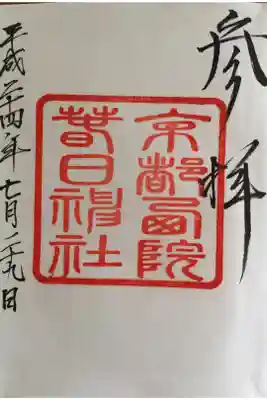 参拝
京都西院
春日神社
平成二十四年七月二十九日